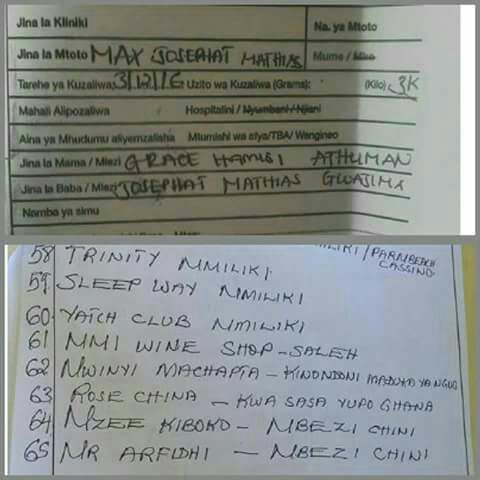 Jina la Kliniki
Na. ya Mtoto
Jina la Mtoto MAX JOSEPHAT MATHIAS Mume / Mke
Tarehe ya Kuzaliwa 3/12/16 Uzito wa Kuzaliwa (Grams): (Kilo) 3K
Mahali Alipozaliwa Hospitalini / Nyumbani / Njiani
Aina ya Mhudumu aliyemzalisha Mtumishi wa afya/TBA/ Wengineo
Jina la Mama / Mlezi GRACE HAMISI ATHUMAN
Jina la Baba / Mlezi JOSEPHAT MATHIAS GWAJIMA
Namba ya simu
58 TRINITY MMILIKI
/PARMBEACH
CASSINO
59 SLEEP WAY MMILIKI
60. YATCH CLUB MMILIKI
61 MMI WINE SHOP - SALEH
62 MWINYI MACHAPTA - KINONDONI MADUKA YA NGUO
63 ROSE CHINA - KWA SASA YUPO GHANA
64 MZEE KIBOKO - MBEZI CHINI
65 MR ARFIDHI - MBEZI CHINI